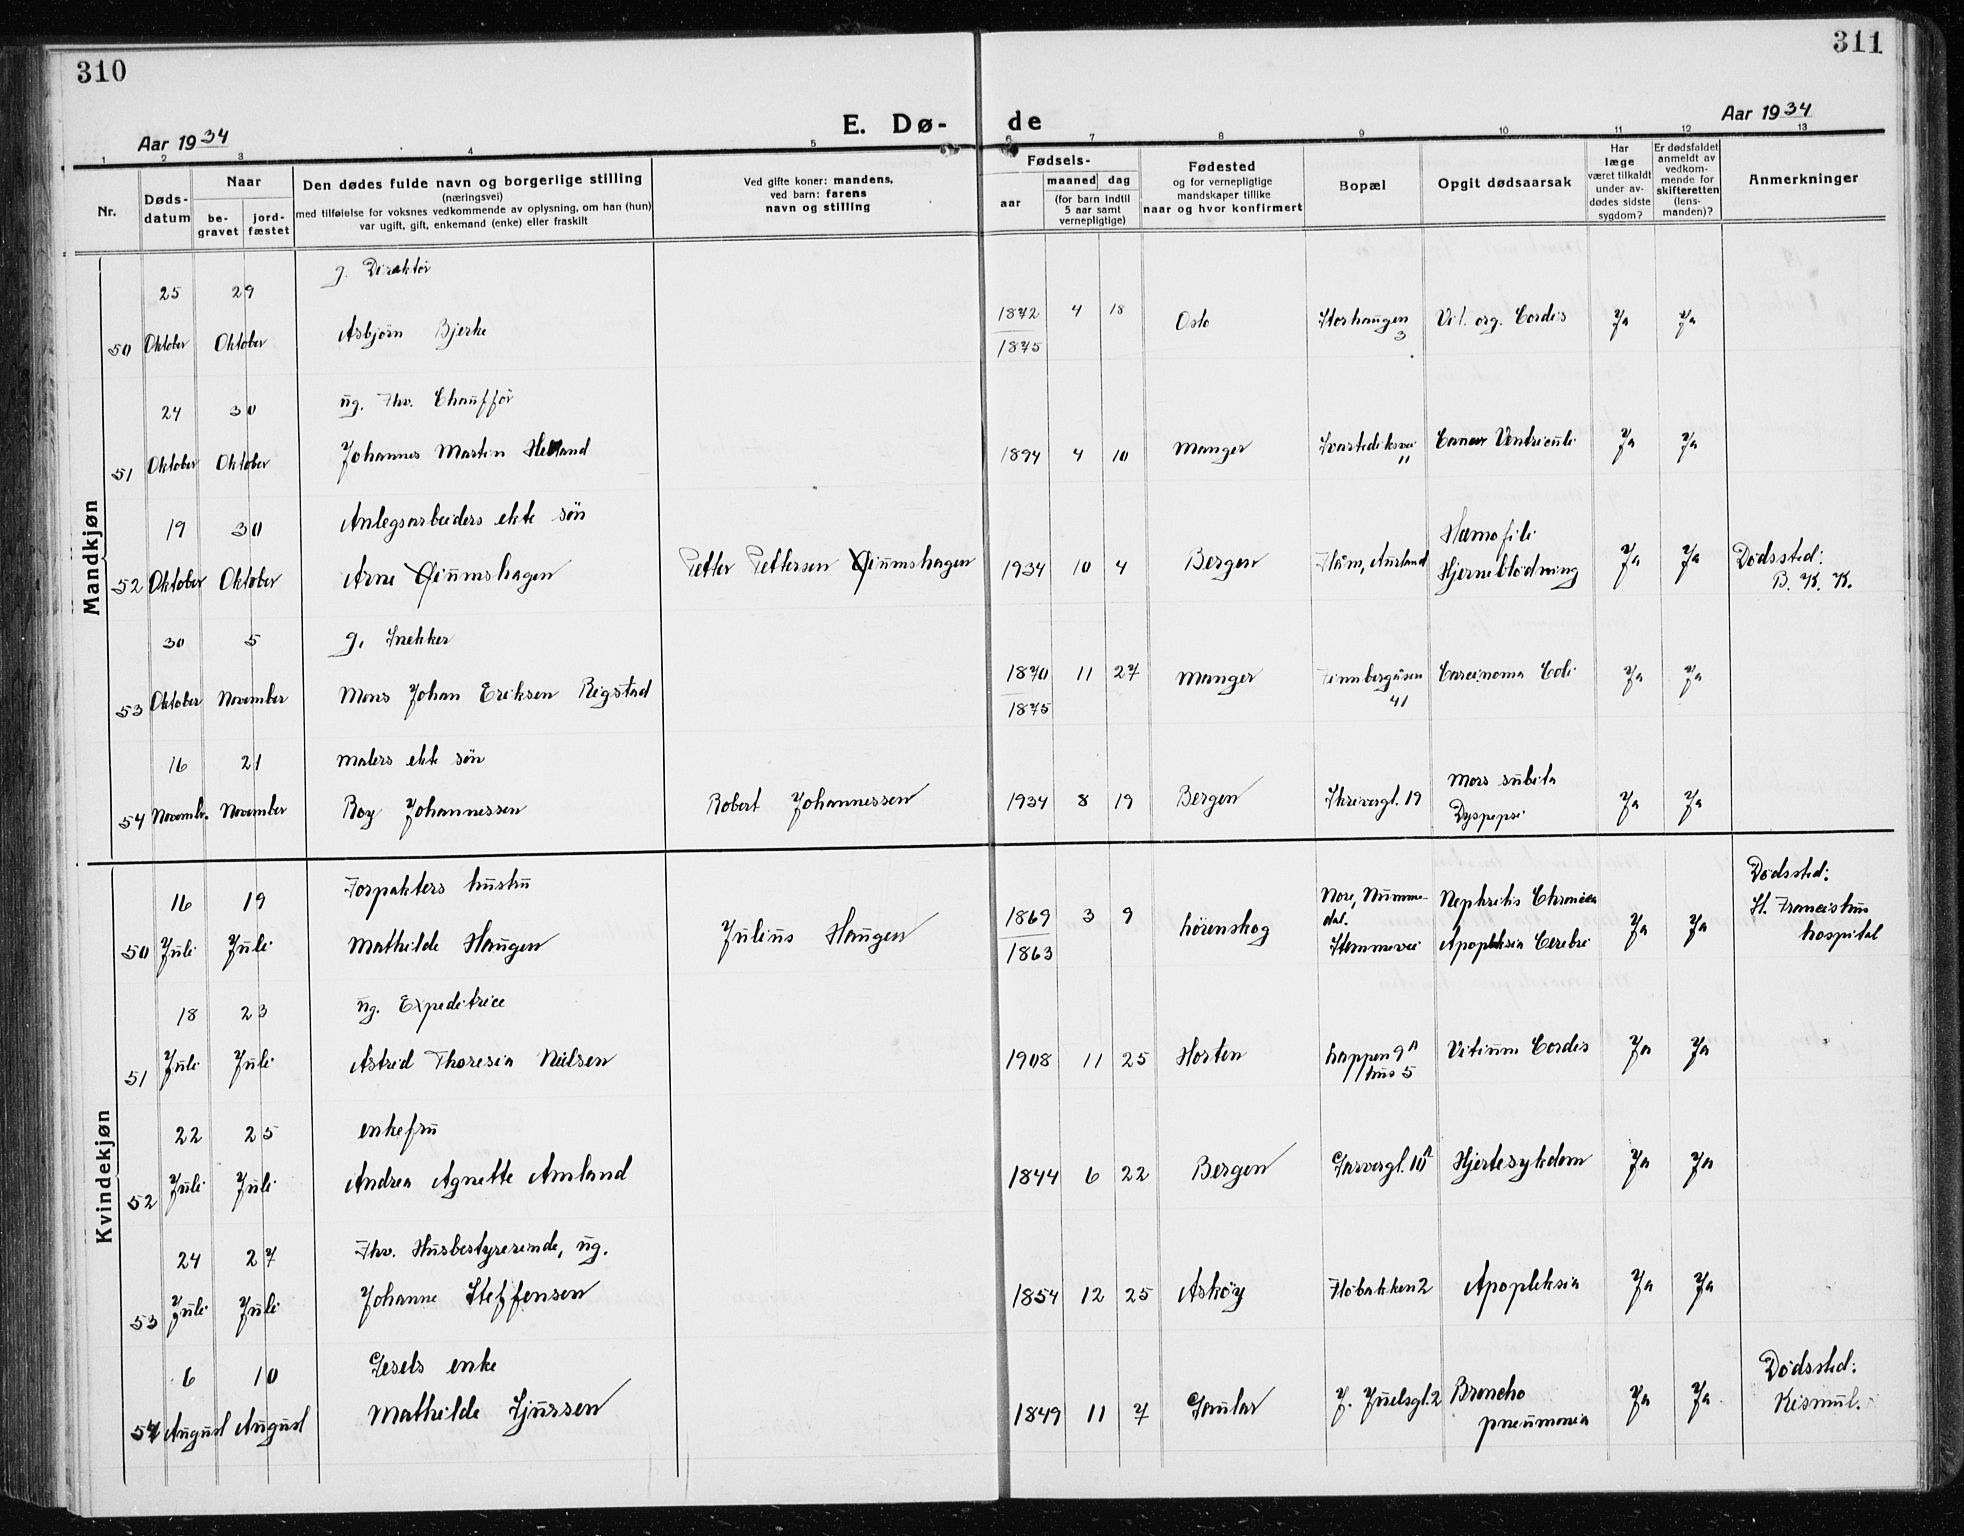 310
311
Aar 1934
E. Dø-
de
Aar 1934
1 2 3 4 5 6 7 8 9 10 11 12 13
Nr.
Døds-
datum
Naar
be-
gravet
jord-
fæstet
Den dødes fulde navn og borgerlige stilling
(næringsvei)
med tilføielse for voksnes vedkommende av oplysning, om han (hun)
var ugift, gift, enkemand (enke) eller fraskilt
Ved gifte koner: mandens,
ved barn: farens
navn og stilling
Fødsels-
aar
maaned dag
(for barn indtil
5 aar samt
vernepligtige)
Fødested
og for vernepligtige
mandskaper tillike
naar og hvor konfirmert
Bopæl
Opgit dødsaarsak
Har
læge
været tilkaldt
under av-
dødes sidste
sygdom?
Er dødsfaldet
anmeldt av
vedkom-
mende for
skifteretten
(lens-
manden)?
Anmerkninger
Mandkjøn
25 29 g. Direktør
50 Oktober Oktober Asbjørn Bjerke 1872 4 18 Oslo Storhaugen 3 Vit. org. Cordis Ja Ja
1875
24 30 ug. Fhv. Chauffør
51 Oktober Oktober Johannes Martin Helland 1894 4 10 Manger Svartediksvei 11 Cancer Ventriculi Ja Ja
19 30 Anlegsarbeiders ekte søn
52 Oktober Oktober Arne Giumshagen Petter Pettersen Giumshagen 1934 10 4 Bergen Flåm, Aurland Hæmofili Hjerneblødning Ja Ja Dødssted: B. K. K.
30 5 g. Snekker
53 Oktober November Mons Johan Eriksen Rigstad 1870 11 27 Manger Finnbergåsen 41 Carcinoma Coli Ja Ja
1875
16 21 Malers ekte søn
54 Novembr. November Roy Johannessen Robert Johannessen 1934 8 19 Bergen Skrivergt. 19 Mors subita Dyspepsi Ja Ja
Kvindekjøn
16 19 Forpakters hustru
50 Juli Juli Mathilde Haugen Julius Haugen 1869 3 9 Lørenskog Nore, Numme-
dal.
Stemmevei Nephritis Chronica Apopleksia Cerebri Ja Ja Dødssted: St. Franciskus hospital
1863
18 23 ug. Expeditrice
51 Juli Juli Astrid Thoresia Nielsen 1908 11 25 Horten Lappen 9A hus 5 Vitium Cordis Ja Ja
22 25 enkefru
52 Juli Juli Andrea Agnette Amland 1844 6 22 Bergen Garvergt. 10A Hjertesykdom Ja Ja
24 27 Fhv. Husbestyrerinde, ug.
53 Juli Juli Johanne Steffensen 1854 12 25 Askøy Fløbakken 2 Apopleksia Ja Ja
6 10 Gesels enke
54 August August Mathilde Sjursen 1849 11 7 Gaular J. Juelsgt. 2 Broncho pneumonia Ja Ja Dødssted: